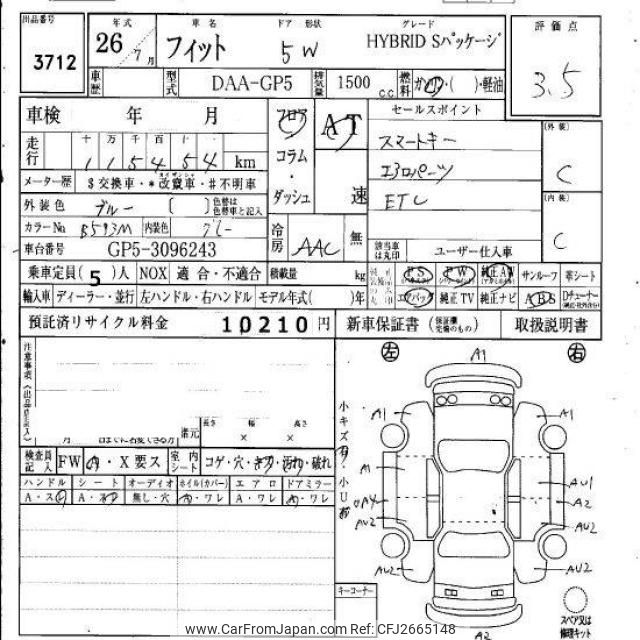 出品番号 年式 車名 ドア 形状 グレード 評価点
3712 26 7月 フィット 5 W HYBRID Sパッケージ 3.5
車歴 型式 DAA-GP5 排気量 1500 c.c. 燃料 ガソリン・( )・軽油
車検 年 月 フロア AT セールスポイント
走行 十 万 千 百 十 一 コラム スマートキー (外装)
1 1 5 4 5 4 km エアロパーツ C
メーター歴 $交換車・*改竄車・#不明車 ダッシュ 速 ETC (内装)
外装色 ブルー [ ] 色替は色替車と記入 C
カラーNo. B593M 内装色 グレー 冷房 AAC 無
車台番号 GP5-3096243 該当車は丸印 ユーザー仕入車
乗車定員(5)人 NOX 適合・不適合 積載量 kg PS PW 純正AW サンルーフ 革シート
輸入車 ディーラー・並行 左ハンドル・右ハンドル モデル年式( )年 エアバック 純正TV 純正ナビ ABS Dチューナー
預託済リサイクル料金 10210 円 新車保証書 (保証書完備のもの) 取扱説明書
注意事項(出品店記入) 左 A1 右
諸元 長さ 幅 高さ
× ×
小キズ有・小U有
A1 A1
検査員記入 FW A・X要ス 室内シート コゲ・穴・キズ・汚れ・破れ
ハンドル シート オーディオ ホイル(カバー) エアロ ドアミラー
A・スレ A・スレ 無し・穴 A・ワレ A・ワレ A・ワレ
A1 AU1
A4 A2
AU2 AU2
AU2 AU2
キーコーナー
スペア又は修理キット
A2
www.CarFromJapan.com Ref: CFJ2665148